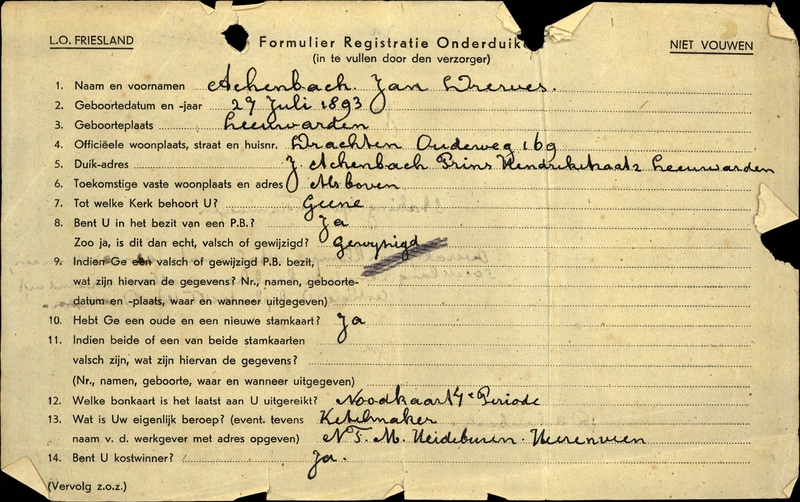 L.O. FRIESLAND
Formulier Registratie Onderduik
NIET VOUWEN
(in te vullen door den verzorger)
1. Naam en voornamen Achenbach. Jan
2. Geboortedatum en -jaar 29 Juli 1893
3. Geboorteplaats Leeuwarden
4. Officiëele woonplaats, straat en huisnr. Drachten Oudeweg 169
5. Duik-adres J. Achenbach Prins Hendrikstraat 2 Leeuwarden
6. Toekomstige vaste woonplaats en adres Alsboven
7. Tot welke Kerk behoort U? Geene
8. Bent U in het bezit van een P.B.? Ja
Zoo ja, is dit dan echt, valsch of gewijzigd? gewyzigd
9. Indien Ge een valsch of gewijzigd P.B. bezit,
wat zijn hiervan de gegevens? Nr., namen, geboorte-
datum en -plaats, waar en wanneer uitgegeven)
10. Hebt Ge een oude en een nieuwe stamkaart? Ja
11. Indien beide of een van beide stamkaarten
valsch zijn, wat zijn hiervan de gegevens?
(Nr., namen, geboorte, waar en wanneer uitgegeven)
12. Welke bonkaart is het laatst aan U uitgereikt? Noodkaart 4e Periode
13. Wat is Uw eigenlijk beroep? (event. tevens Ketelmaker
naam v. d. werkgever met adres opgeven) N.T.M. Heideburen. Heerenveen
14. Bent U kostwinner? Ja.
(Vervolg z.o.z.)